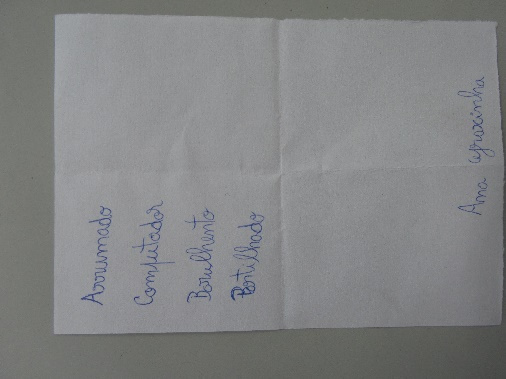 Arrumado
Computador
Barulhento
Partilhado
Ana Graxinha